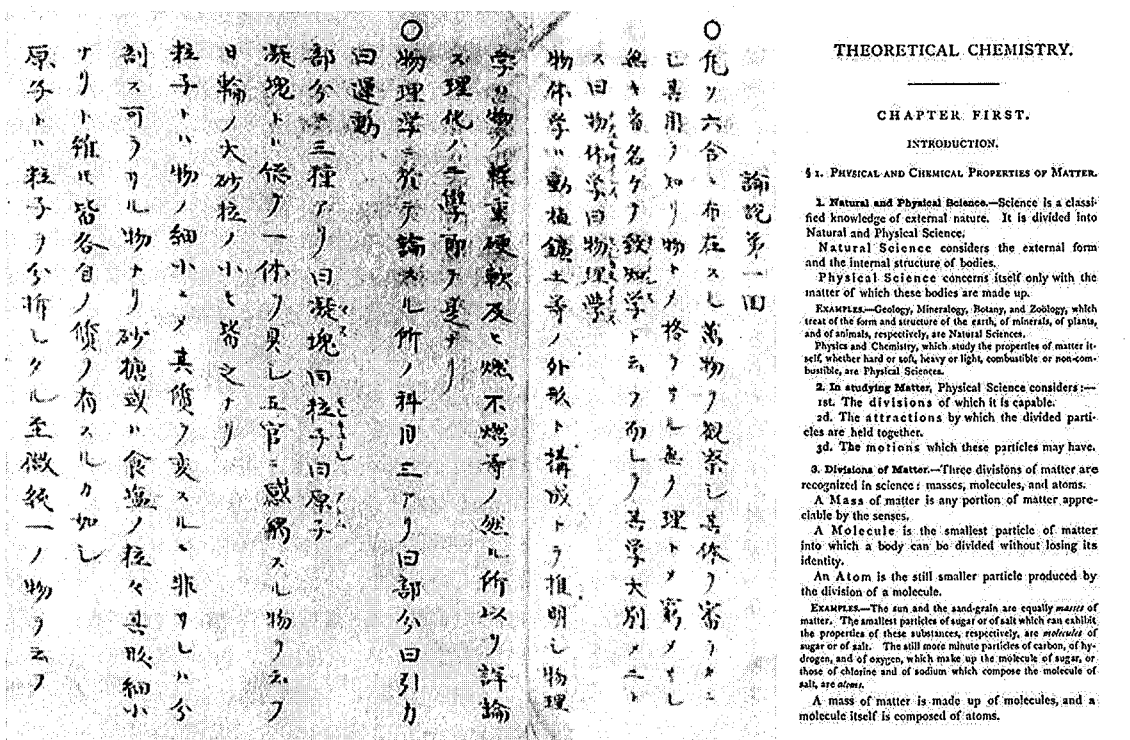 論説第一回
○凡ソ六合ニ布在スル萬物ヲ観察シ其体ヲ審ラカニ
シ其用ヲ知リ物トメ格ラサル無ク理トメ窮メサル
無キ者名ケテ致知学ト云フ而シテ其学大別メ二ト
ス曰物体学曰物理學
物体学ハ動植鑛土等ノ外形ト構成トヲ推明シ物理
学ハ物ノ輕重硬軟及ヒ燃不燃等ノ然ル所以ヲ詳論
ス理化ノ二學即チ是ナリ
○物理学ニ於テ論スル所ノ科目三アリ曰部分曰引力
曰運動
部分ニ三種アリ曰凝塊曰粒子曰原子
凝塊トハ総テ一体ヲ具シ五官ニ感觸スル物ヲ云フ
日輪ノ大砂粒ノ小モ皆之ナリ
粒子トハ物ノ細小ニメ其質ヲ変スルニ非サレハ分
割ス可ラサル物ナリ砂糖或ハ食塩ノ粒々其細小
ナリト雖モ皆各自ノ質ヲ有スルカ如シ
原子トハ粒子ヲ分析シタル至微純一ノ物ヲ云フ
THEORETICAL CHEMISTRY.
CHAPTER FIRST.
INTRODUCTION.
§ 1. PHYSICAL AND CHEMICAL PROPERTIES OF MATTER.
1. Natural and Physical Science.—Science is a classi-
fied knowledge of external nature. It is divided into
Natural and Physical Science.
Natural Science considers the external form
and the internal structure of bodies.
Physical Science concerns itself only with the
matter of which these bodies are made up.
EXAMPLES.—Geology, Mineralogy, Botany, and Zoölogy, which
treat of the form and structure of the earth, of minerals, of plants,
and of animals, respectively, are Natural Sciences.
Physics and Chemistry, which study the properties of matter it-
self, whether hard or soft, heavy or light, combustible or non-com-
bustible, are Physical Sciences.
2. In studying Matter, Physical Science considers:—
1st. The divisions of which it is capable.
2d. The attractions by which the divided parti-
cles are held together.
3d. The motions which these particles may have.
3. Divisions of Matter.—Three divisions of matter are
recognized in science: masses, molecules, and atoms.
A Mass of matter is any portion of matter appre-
ciable by the senses.
A Molecule is the smallest particle of matter
into which a body can be divided without losing its
identity.
An Atom is the still smaller particle produced by
the division of a molecule.
EXAMPLES.—The sun and the sand-grain are equally masses of
matter. The smallest particles of sugar or of salt which can exhibit
the properties of these substances, respectively, are molecules of
sugar or of salt. The still more minute particles of carbon, of hy-
drogen, and of oxygen, which make up the molecule of sugar, or
those of chlorine and of sodium which compose the molecule of
salt, are atoms.
A mass of matter is made up of molecules, and a
molecule itself is composed of atoms.